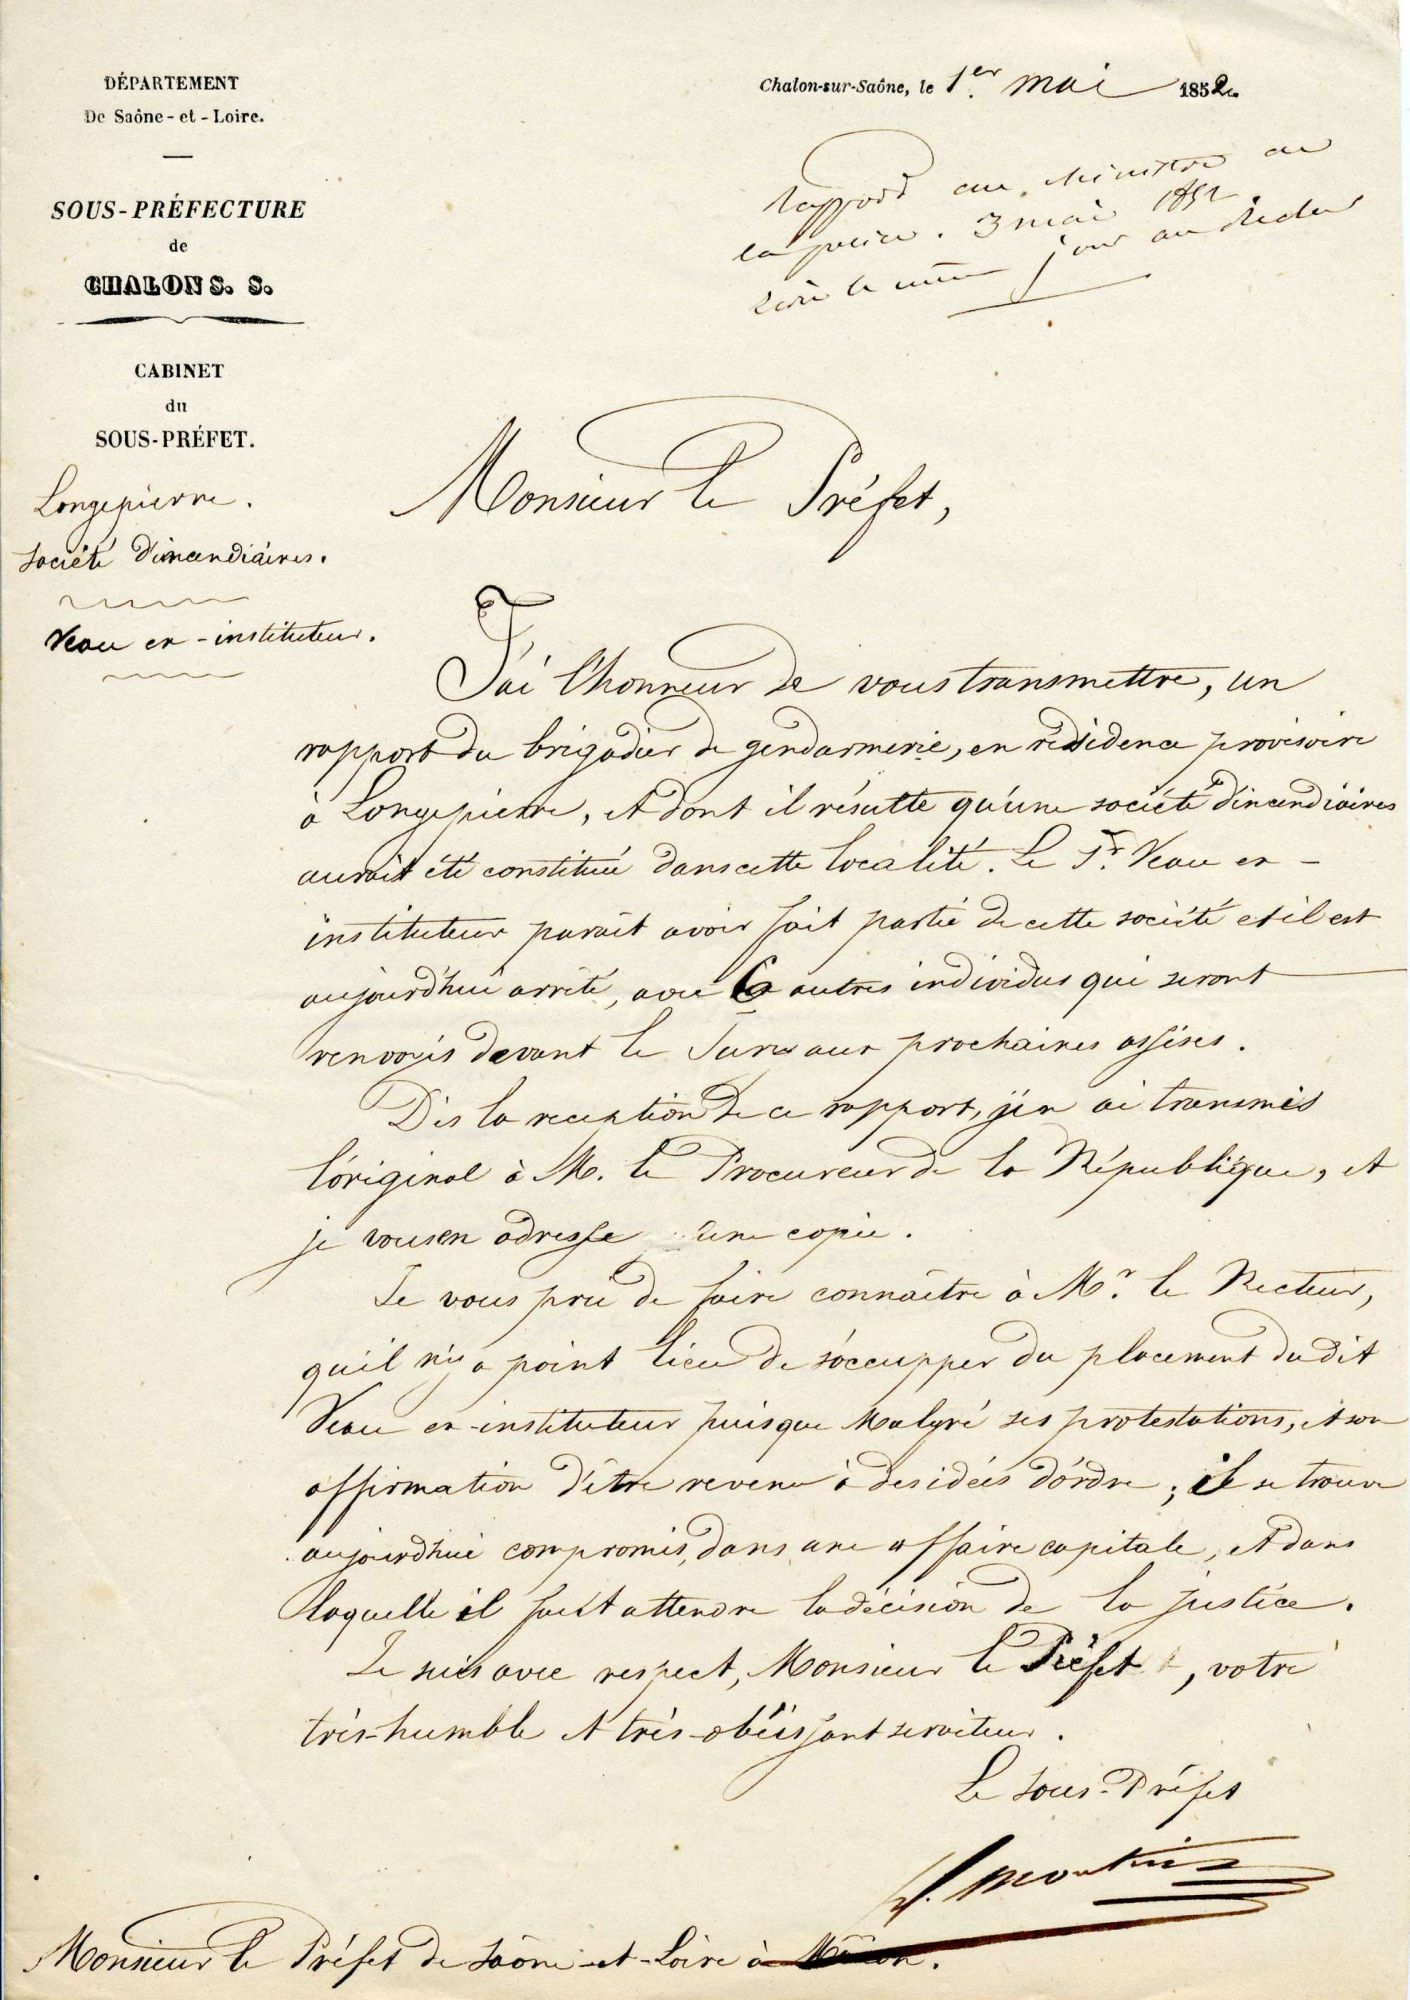 DÉPARTEMENT
De Saône-et-Loire.
SOUS-PRÉFECTURE
de
CHALON S. S.
CABINET
du
SOUS-PRÉFET.
Longepierre.
Société d'incendiaires.
Veau ex-instituteur.
Chalon-sur-Saône, le 1er mai 1852
Rapport au Ministre de
la police. 3 mai 1852
Écrit le même jour au Recteur
Monsieur le Préfet,
J'ai l'honneur de vous transmettre, un
rapport du brigadier de gendarmerie, en résidence provisoire
à Longepierre, et dont il résulte qu'une société d'incendiaires
aurait été constituée dans cette localité. Le Sr. Veau ex-
instituteur parait avoir fait partie de cette société et il est
aujourd'hui arrêté, avec 6 autres individus qui seront
renvoyés devant le Jury aux prochaines assises.
Dès la reception de ce rapport, j'en ai transmis
l'original à M. le Procureur de la République, et
je vous en adresse une copie.
Je vous prie de faire connaître à Mr. le Recteur,
qu'il n'y a point lieu de s'occupper du placement du dit
Veau ex-instituteur puisque malgré ses protestations, et son
affirmation d'être revenu à des idées d'ordre, il se trouve
aujourd'hui compromis, dans une affaire capitale, et dans
laquelle il faut attendre la décision de la justice.
Je suis avec respect, Monsieur le Préfet, votre
très-humble et très-obéissant serviteur.
Le Sous-Préfet
Monsieur le Préfet de Saône-et-Loire à Mâcon.